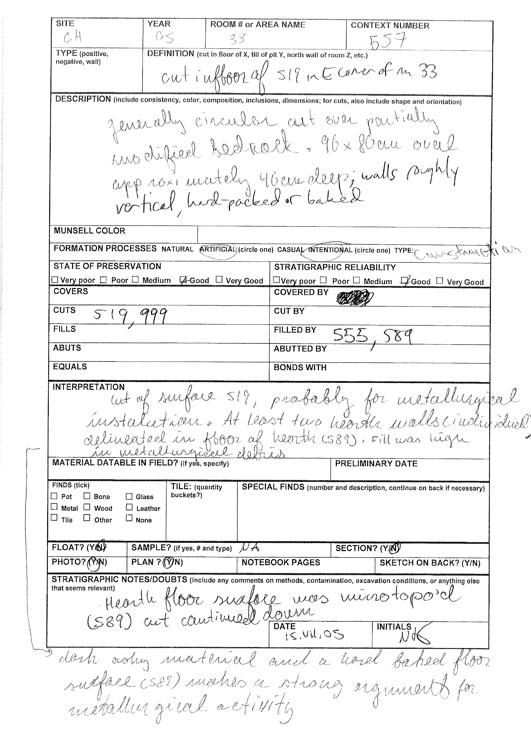 SITE YEAR ROOM # or AREA NAME CONTEXT NUMBER
CH 05 33 557
TYPE (positive, negative, wall) DEFINITION (cut in floor of X, fill of pit Y, north wall of room Z, etc.)
cut in floor of 519 in E corner of rm 33
DESCRIPTION (include consistency, color, composition, inclusions, dimensions; for cuts, also include shape and orientation)
generally circular cut over partially
modified bedrock. 90 x 80cm oval
approximately 40cm deep; walls roughly
vertical, hard-packed or baked
MUNSELL COLOR
FORMATION PROCESSES NATURAL ARTIFICIAL (circle one) CASUAL INTENTIONAL (circle one) TYPE: Construction
STATE OF PRESERVATION STRATIGRAPHIC RELIABILITY
Very poor Poor Medium Good Very Good Very poor Poor Medium Good Very Good
COVERS COVERED BY
CUTS 519, 999 CUT BY
FILLS FILLED BY 555, 589
ABUTS ABUTTED BY
EQUALS BONDS WITH
INTERPRETATION
Cut of surface 519, probably for metallurgical
instalation. At least two hearth walls (individual)
delineated in floor of hearth (589). Fill was high
in metallurgical debris
MATERIAL DATABLE IN FIELD? (if yes, specify) PRELIMINARY DATE
FINDS (tick) TILE: (quantity buckets?) SPECIAL FINDS (number and description, continue on back if necessary)
Pot Bone Glass
Metal Wood Leather
Tile Other None
FLOAT? (Y/N) SAMPLE? (if yes, # and type) NA SECTION? (Y/N)
PHOTO? (Y/N) PLAN ? (Y/N) NOTEBOOK PAGES SKETCH ON BACK? (Y/N)
STRATIGRAPHIC NOTES/DOUBTS (Include any comments on methods, contamination, excavation conditions, or anything else
that seems relevant)
Hearth floor surface was microtopo'd
(589) cut continued down
DATE INITIALS
15.VII.05
dark ashy material and a hard baked floor
surface (589) makes a strong argument for
metallurgical activity